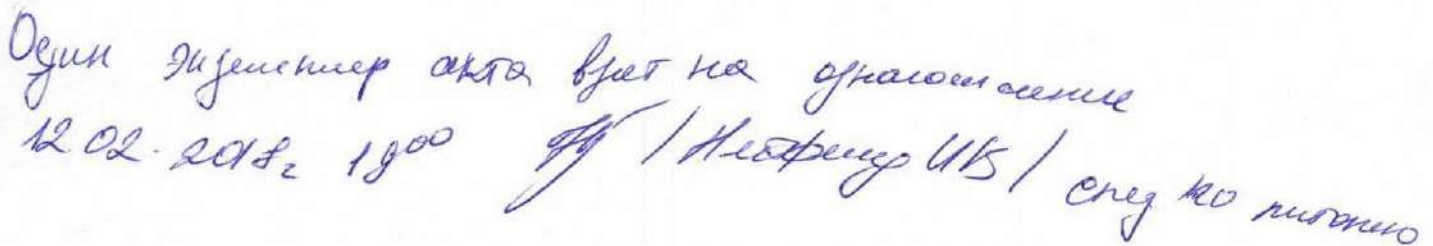 Один экземпляр акта взят на ознакомление
12.02.2018г 19⁰⁰ / ИВ / спец по питанию